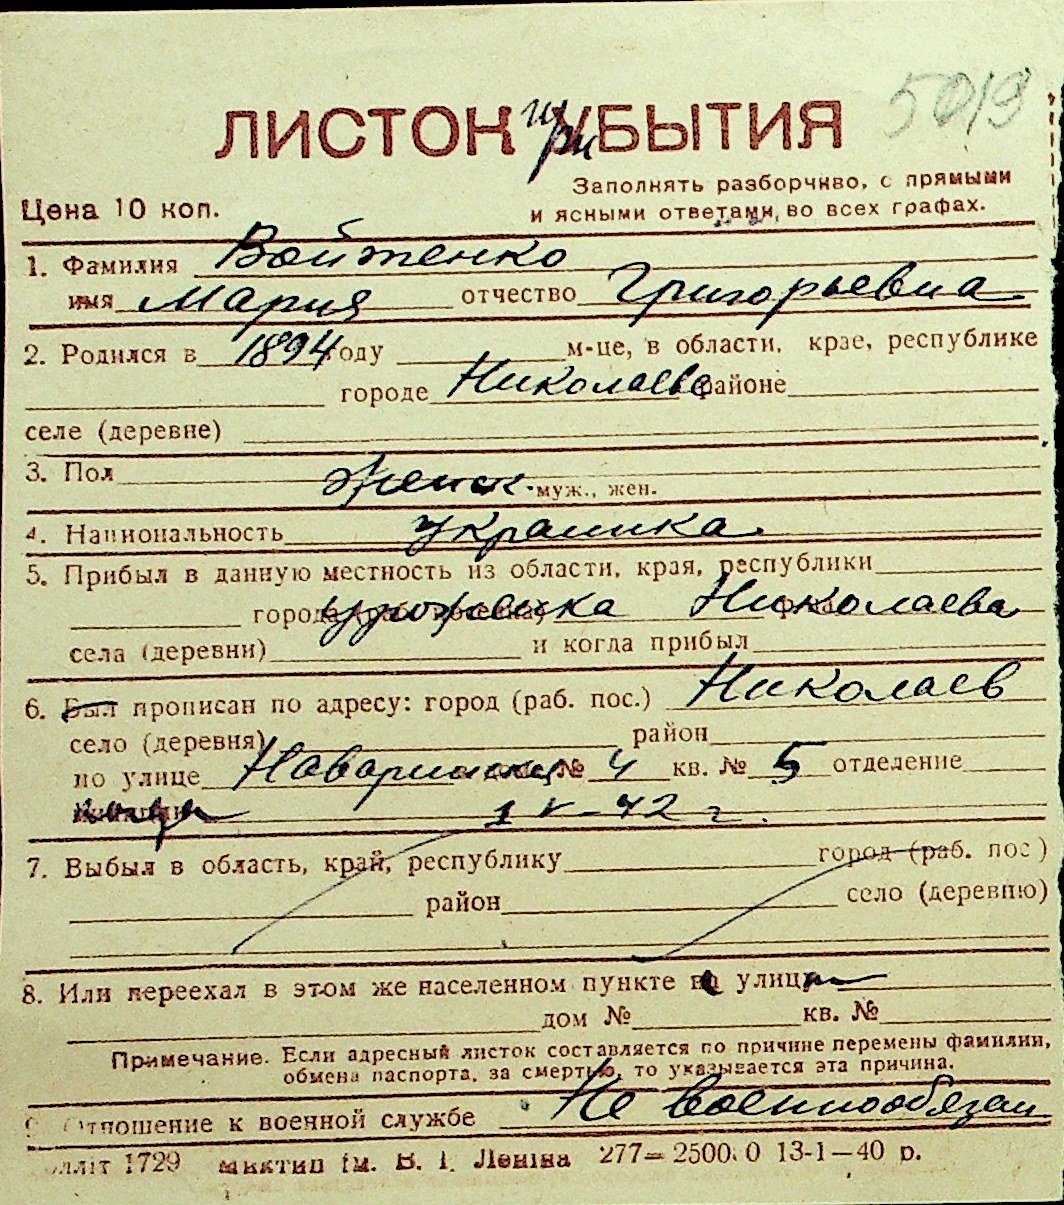 5019
ЛИСТОК при УБЫТИЯ
Заполнять разборчиво, с прямыми
Цена 10 коп.
и ясными ответами, во всех графах.
1. Фамилия Войтенко
имя Мария отчество Григорьевна
2. Родился в 1894 году м-це, в области, крае, республике
городе Николаеве районе
селе (деревне)
3. Пол женск. муж., жен.
4. Национальность украинка
5. Прибыл в данную местность из области, края, республики
города уроженка Николаева
села (деревни) и когда прибыл
6. Был прописан по адресу: город (раб. пос.) Николаев
село (деревня) район
по улице Наваринская № 4 кв. № 5 отделение
1 V-42 г.
7. Выбыл в область, край, республику город (раб. пос.)
район село (деревню)
8. Или переехал в этом же населенном пункте на улицу
дом № кв. №
Примечание. Если адресный листок составляется по причине перемены фамилии,
обмена паспорта, за смертью, то указывается эта причина.
9. Отношение к военной службе Не военнообязан
1729 ім. В. І. Леніна 277— 2500 0 13-1—40 р.